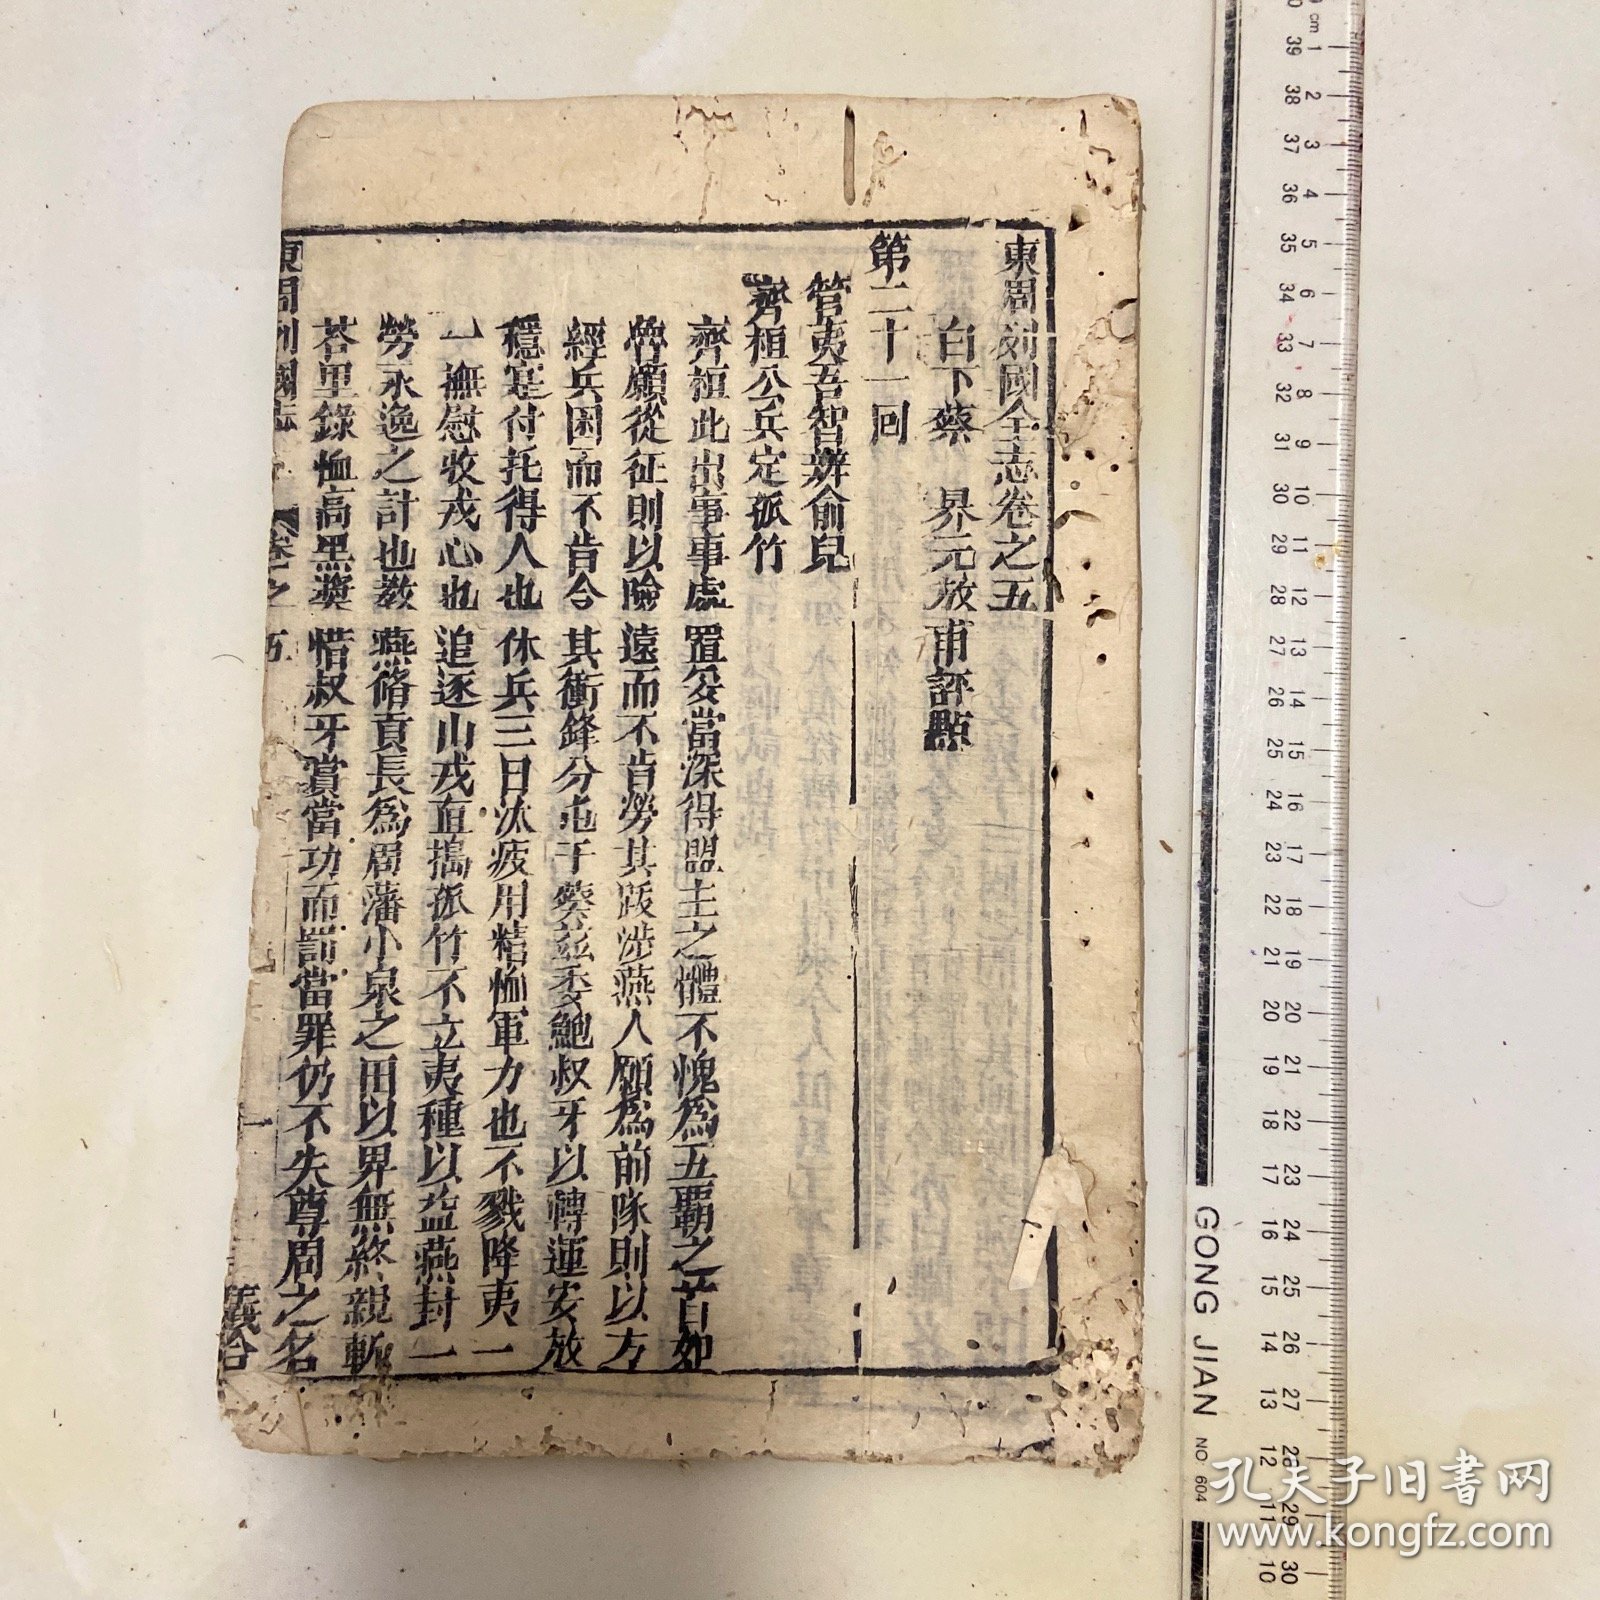 東周列國全志卷之五
白下蔡 界元放甫評點
第二十一回
管夷吾智辨俞兒
齊桓公兵定孤竹
齊桓此出事事處置妥當深得盟主之體不愧為五霸之首如
魯願從征則以險遠而不肯勞其跋涉燕人願為前隊則以方
經兵困而不肯令其衝鋒分屯于葵茲委鮑叔牙以轉運安放
穩寔付托得人也休兵三日汰疲用精恤軍力也不戮降夷一
一撫慰收戎心也追逐山戎直搗孤竹不立夷種以益燕封一
勞永逸之計也教燕脩貢長為周藩小泉之田以畀無終親斬
荅里錄恤高黑獎惜叔牙賞當功而罰當罪仍不失尊周之名
東周列國志
卷之五
一
義合
GONG JIAN
NO: 604
孔夫子旧书网
www.kongfz.com